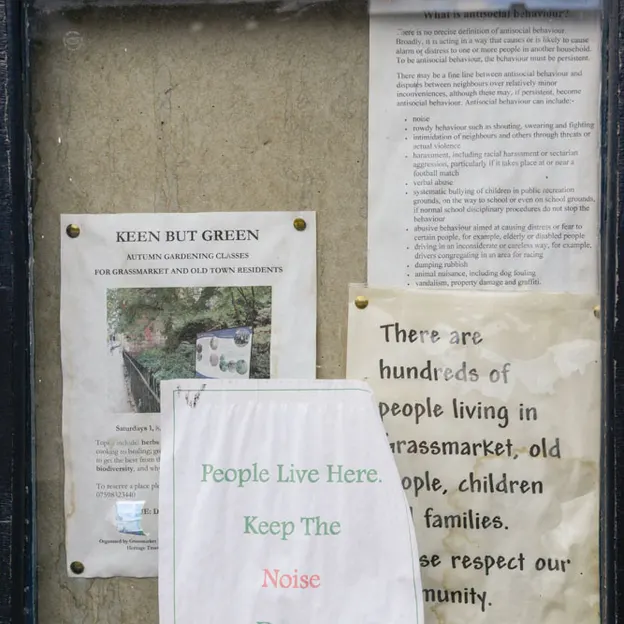 What is antisocial behaviour?
There is no precise definition of antisocial behaviour.
Broadly, it is acting in a way that causes or is likely to cause
alarm or distress to one or more people in another household.
To be antisocial behaviour, the behaviour must be persistent.
There may be a fine line between antisocial behaviour and
disputes between neighbours over relatively minor
inconveniences, although these may, if persistent, become
antisocial behaviour. Antisocial behaviour can include:-
• noise
• rowdy behaviour such as shouting, swearing and fighting
• intimidation of neighbours and others through threats or
actual violence
• harassment, including racial harassment or sectarian
aggression, particularly if it takes place at or near a
football match
• verbal abuse
• systematic bullying of children in public recreation
grounds, on the way to school or even on school grounds,
if normal school disciplinary procedures do not stop the
behaviour
• abusive behaviour aimed at causing distress or fear to
certain people, for example, elderly or disabled people
• driving in an inconsiderate or careless way, for example,
drivers congregating in an area for racing
• dumping rubbish
• animal nuisance, including dog fouling
• vandalism, property damage and graffiti.
KEEN BUT GREEN
AUTUMN GARDENING CLASSES
FOR GRASSMARKET AND OLD TOWN RESIDENTS
Saturdays 1, 8,
Topics include: herbs
cooking to healing; gr
to get the best from th
biodiversity, and why
To reserve a place pl
07598323440
E: D
Organised by Grassmarket
Heritage Trust
There are
hundreds of
people living in
Grassmarket, old
ople, children
families.
se respect our
munity.
People Live Here.
Keep The
Noise